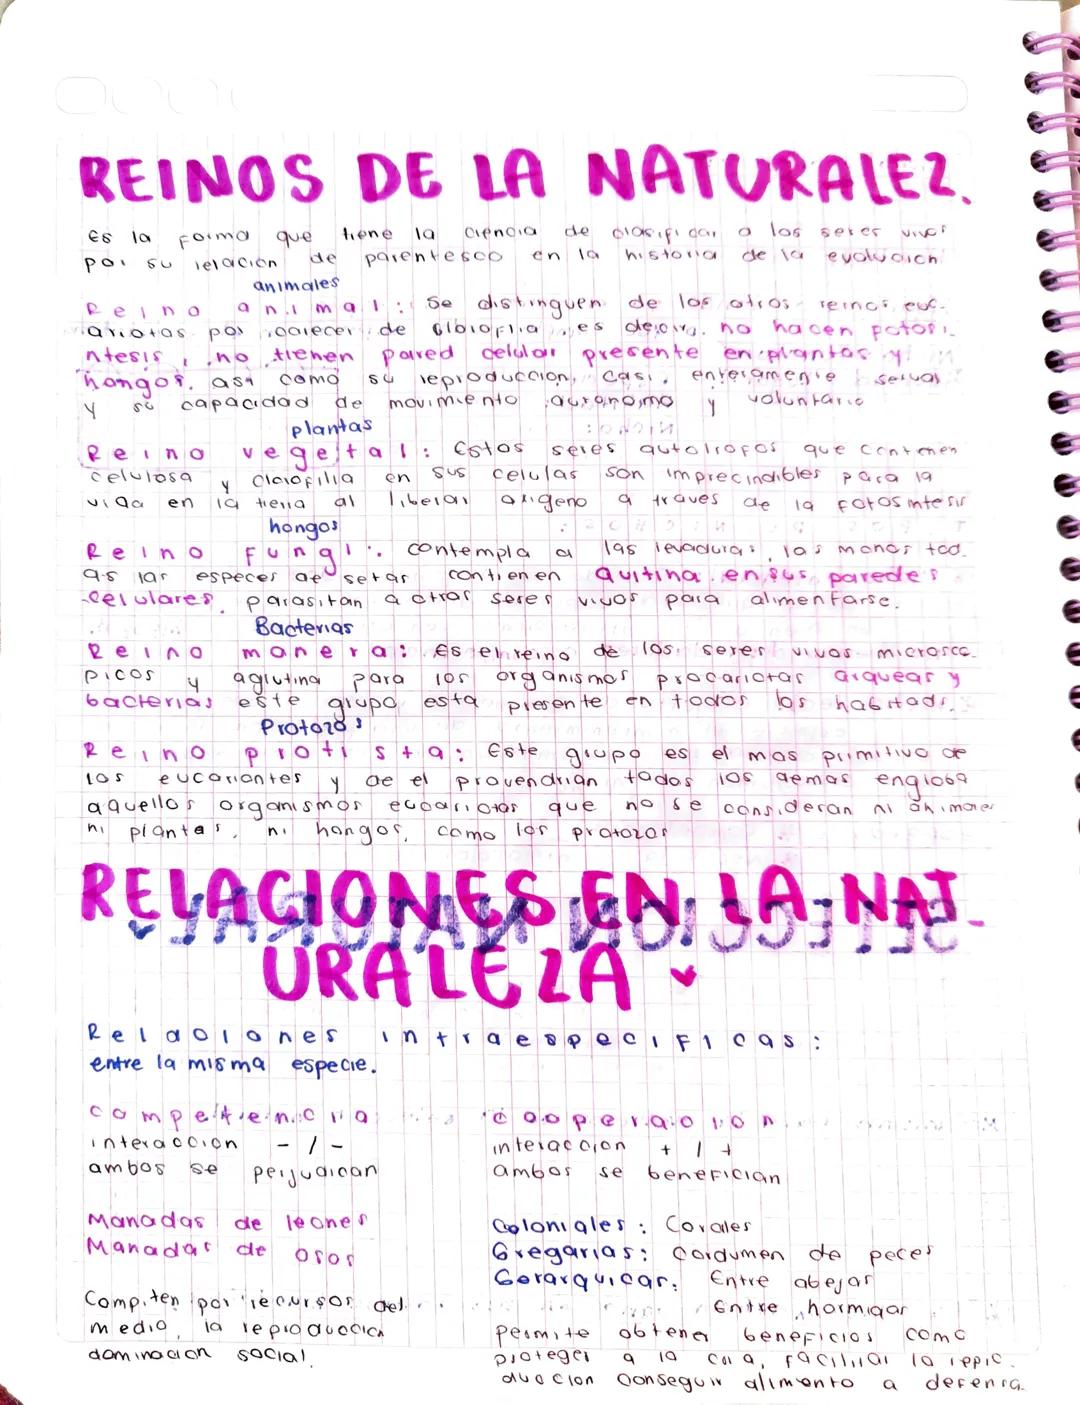 REINOS DE LA NATURALEZ.
Es la forma que tiene la ciencia de clasificar a los seres vivos
por su relacion de parentesco en la historia de la evoluoich
animales
Reino animal: Se distinguen de los otros reinos euc-
ariotas por carecer de clorofila, es decir, no hacen fotosi-
ntesis, no tienen pared celular presente en plantas y
hongos, asi como su reproduccion, casi enteramente sexual
y su capacidad de movimiento autonomo y voluntario
plantas
Reino vegetal: Estos seres autotrofos que contienen
celulosa y clorofilia en sus celulas son imprecindibles para la
vida en la tierra al liberar oxigeno a traves de la fotosintesis
hongos
Reino Fungi: contempla a las levaduras, los monos tod-
as las especes de setas contienen quitina en sus paredes
celulares. parasitan a otros seres vivos para alimentarse.
Bacterias
Reino manera: Es el reino de los seres vivos microsco-
picos y aglutina para los organismos procariotas arquear y
bacterias este grupo esta presente en todos los habitads.
Protozos
Reino protista: Este grupo es el mas primitivo de
los eucoriontes y de el provendrian todos los demas engloba
aquellos organismos eucariotas que no se consideran ni animales
ni plantas, ni hongos, como los protozos
RELACIONES EN LA NAT-
URALEZA
Relaciones intraespecificas:
entre la misma especie.
Competencia
interaccion - / -
ambos se perjudican
Manadas de leones
Manadas de osos
Compiten por recursos del
medio, la reproduccion
dominacion social.
Cooperacion
interaccion + / +
ambos se benefician
Coloniales: Corales
Gregarias: Cardumen de peces
Gerarquicas: Entre abejas
Entre hormigas
Permite obtener beneficios como
proteger a la cria, facilitar la repro-
duccion conseguir alimento a defensa.